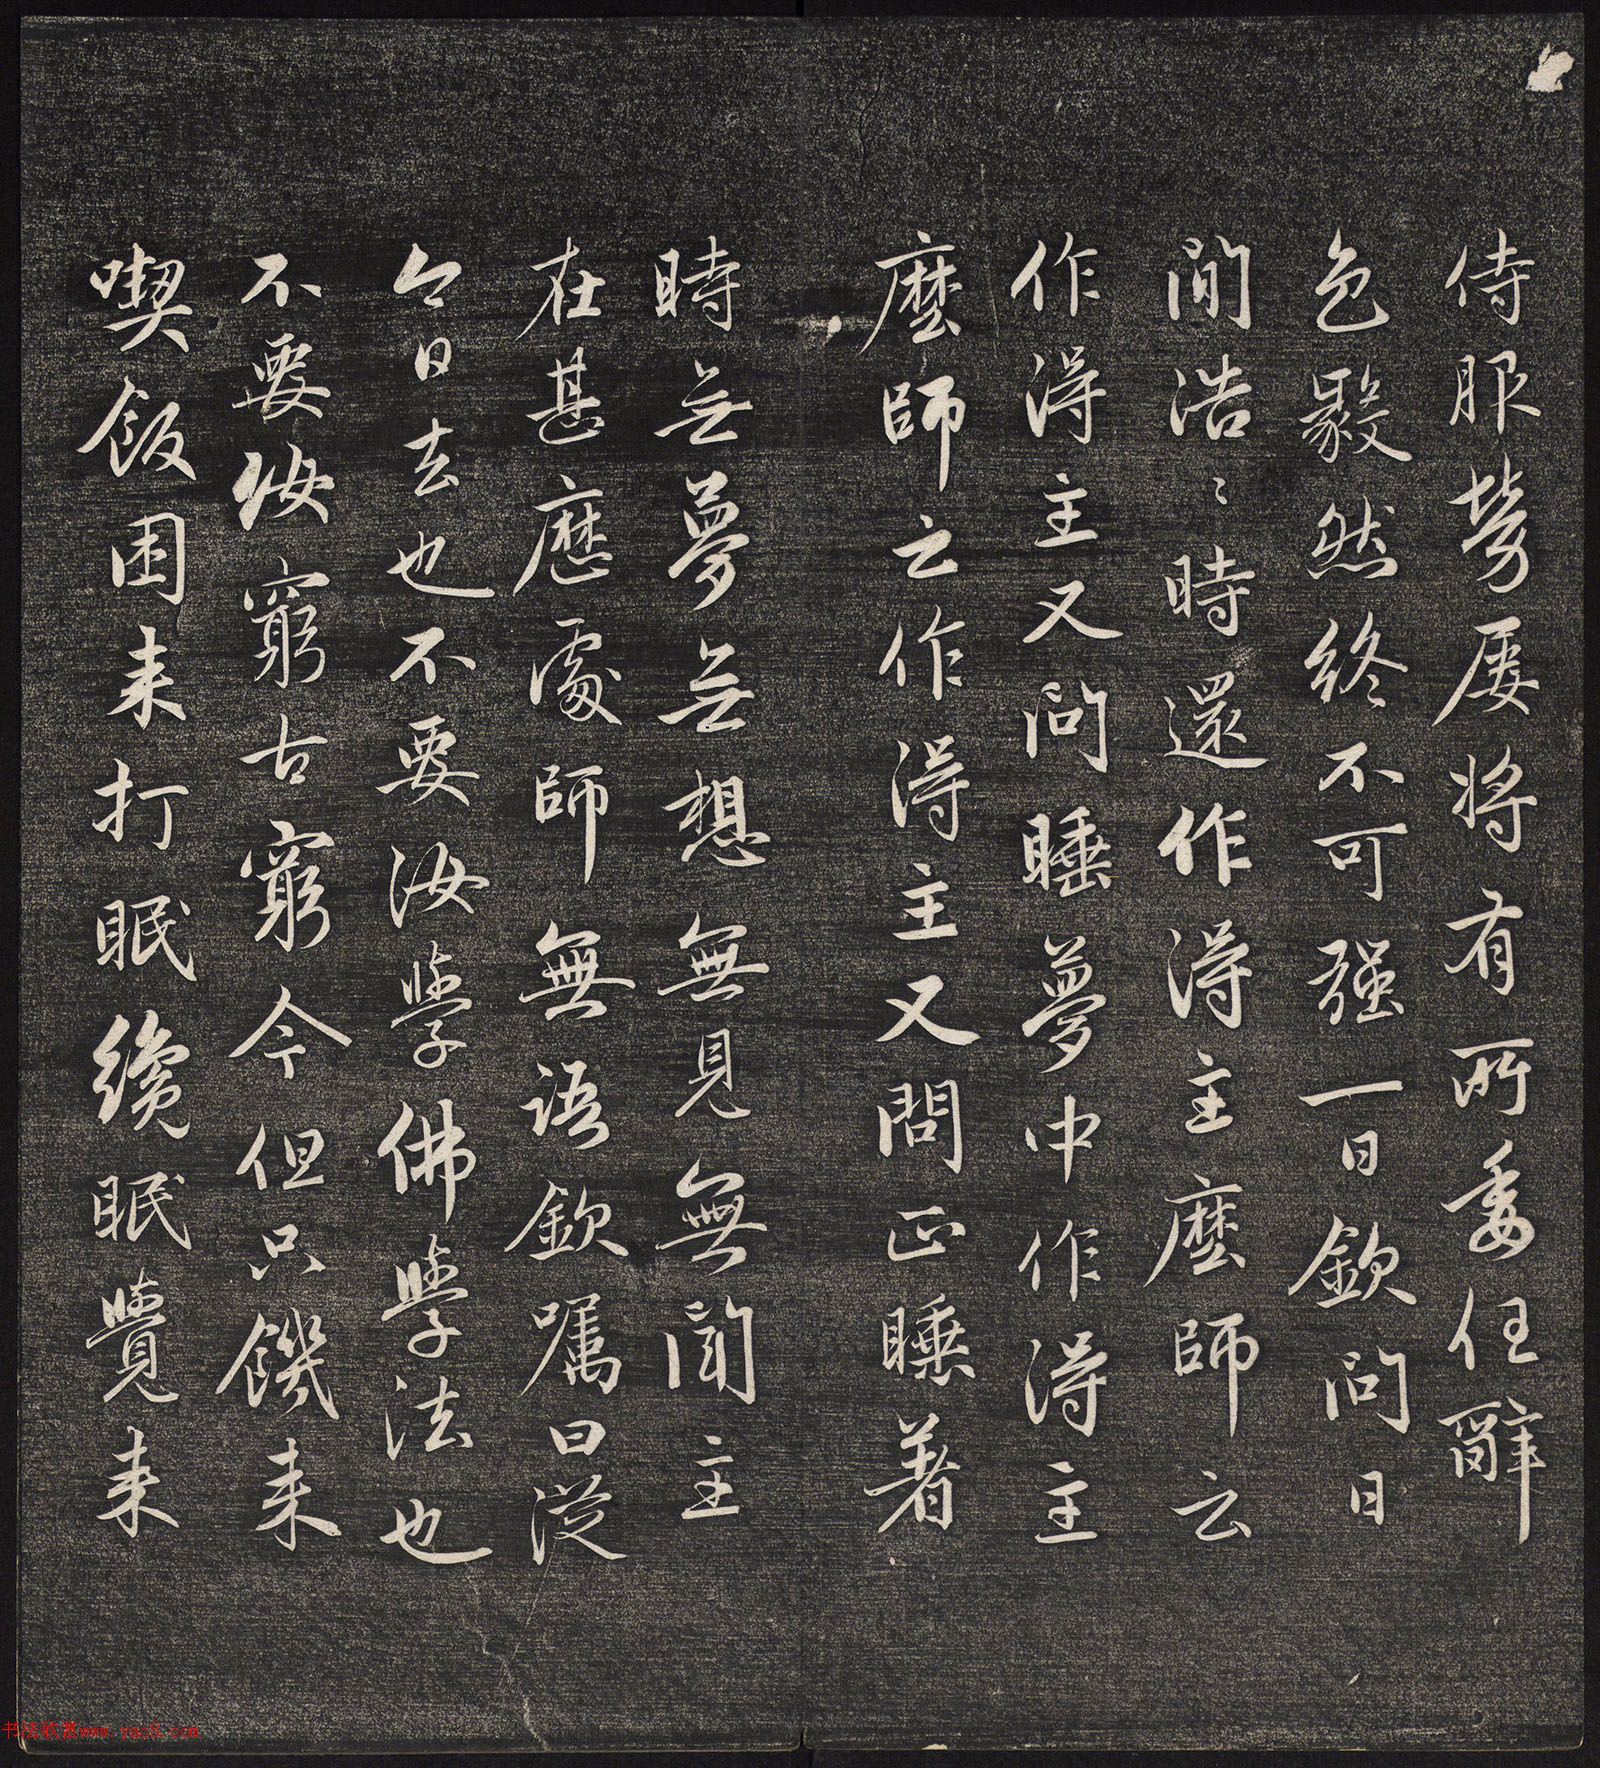 侍服勞屢將有所委任辭
色毅然終不可强一日欽問日
間浩〻時還作得主麼師云
作得主又問睡夢中作得主
麼師云作得主又問正睡著
時無夢無想無見無聞主
在甚麽處師無語欽囑曰從
今日去也不要汝學佛學法也
不要汝窮古窮今但只饑來
喫飯困来打眠纔眠覺来
书法欣赏www.yac8.com